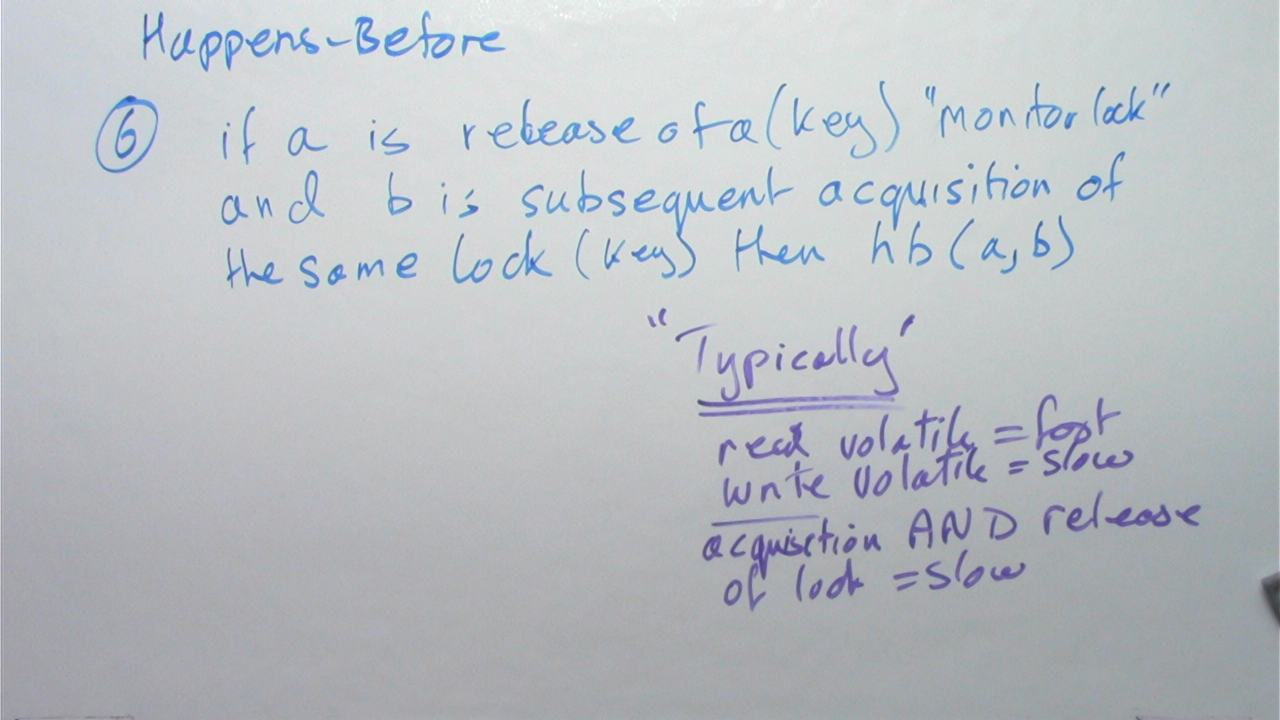 Happens-Before
6 if a is release of a (key) "monitor lock"
and b is subsequent acquisition of
the same lock (key) then hb(a,b)
"Typically"
read volatile = fast
write volatile = slow
acquisition AND release
of lock = slow